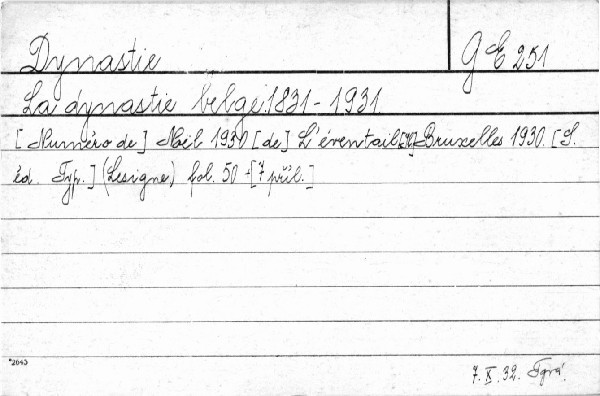 Dynastie
G E 251
La dynastie belge 1831-1931
[Numéro de] Noël 1930 [de] L'éventail [4] Bruxelles 1930. [S.
éd. Typ.] (Lesigne) fol. 50 + [7 příl.]
*2643
7. X. 32.